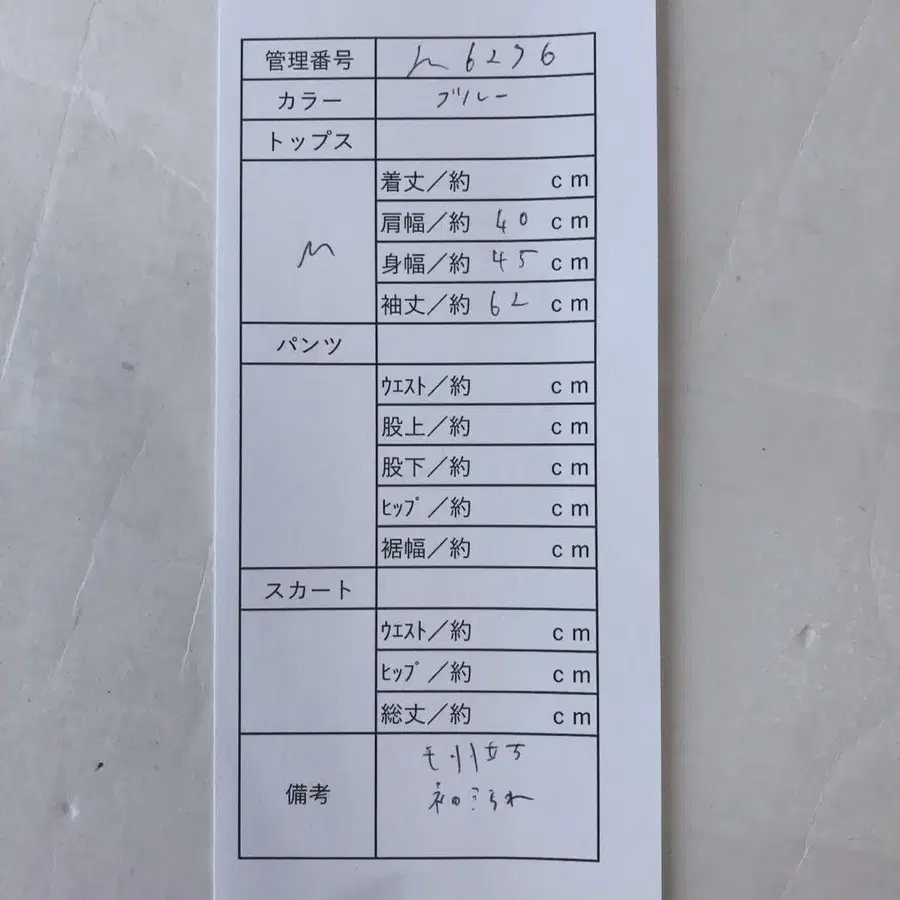 管理番号 h6296
カラー ブルー
トップス
M
着丈／約 cm
肩幅／約 40 cm
身幅／約 45 cm
袖丈／約 62 cm
パンツ
ｳｴｽﾄ／約 cm
股上／約 cm
股下／約 cm
ﾋｯﾌﾟ／約 cm
裾幅／約 cm
スカート
ｳｴｽﾄ／約 cm
ﾋｯﾌﾟ／約 cm
総丈／約 cm
備考
毛羽立ち
袖口汚れ